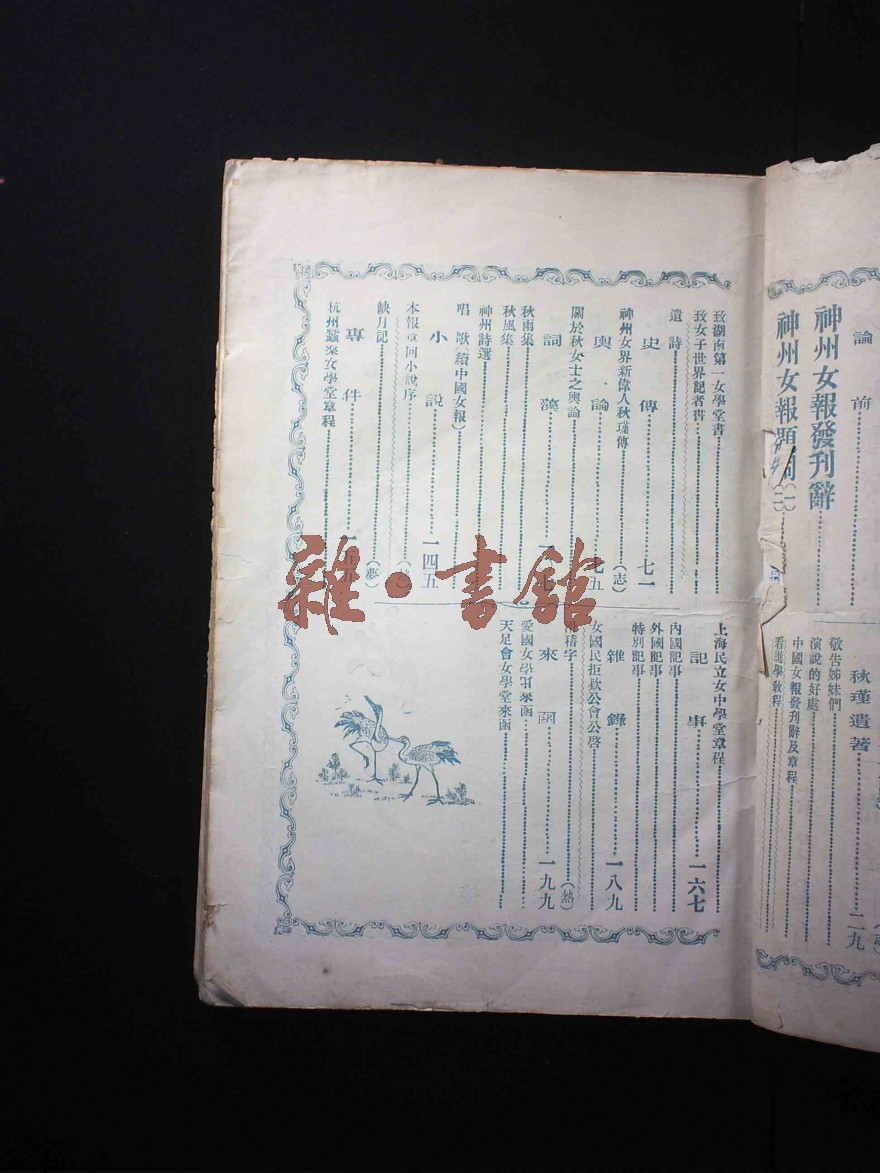 論前
神州女報發刊辭
神州女報題詞(一)(二)
秋瑾遺著 二九
敬告姊妹們
演說的好處
中國女報發刊辭及章程
看護學教程
致湖南第一女學堂書
致女子世界記者書
遺詩
史傳 七一
神州女界新偉人秋瑾傳 (志)
輿論 七五
關於秋女士之輿論
詞藻
秋雨集
秋風集
神州詩選
唱歌(續中國女報)
小說 一四五
本報章回小說序
缺月記 (夢)
專件
杭州蠶桑女學堂章程
上海民立女中學堂章程
記事 一六七
內國記事
外國記事
特別記事
雜錄 一八九
女國民拒款公會公啓
稽字 (熱)
來函 一九九
愛國女學堂來函
天足會女學堂來函
雜·書館